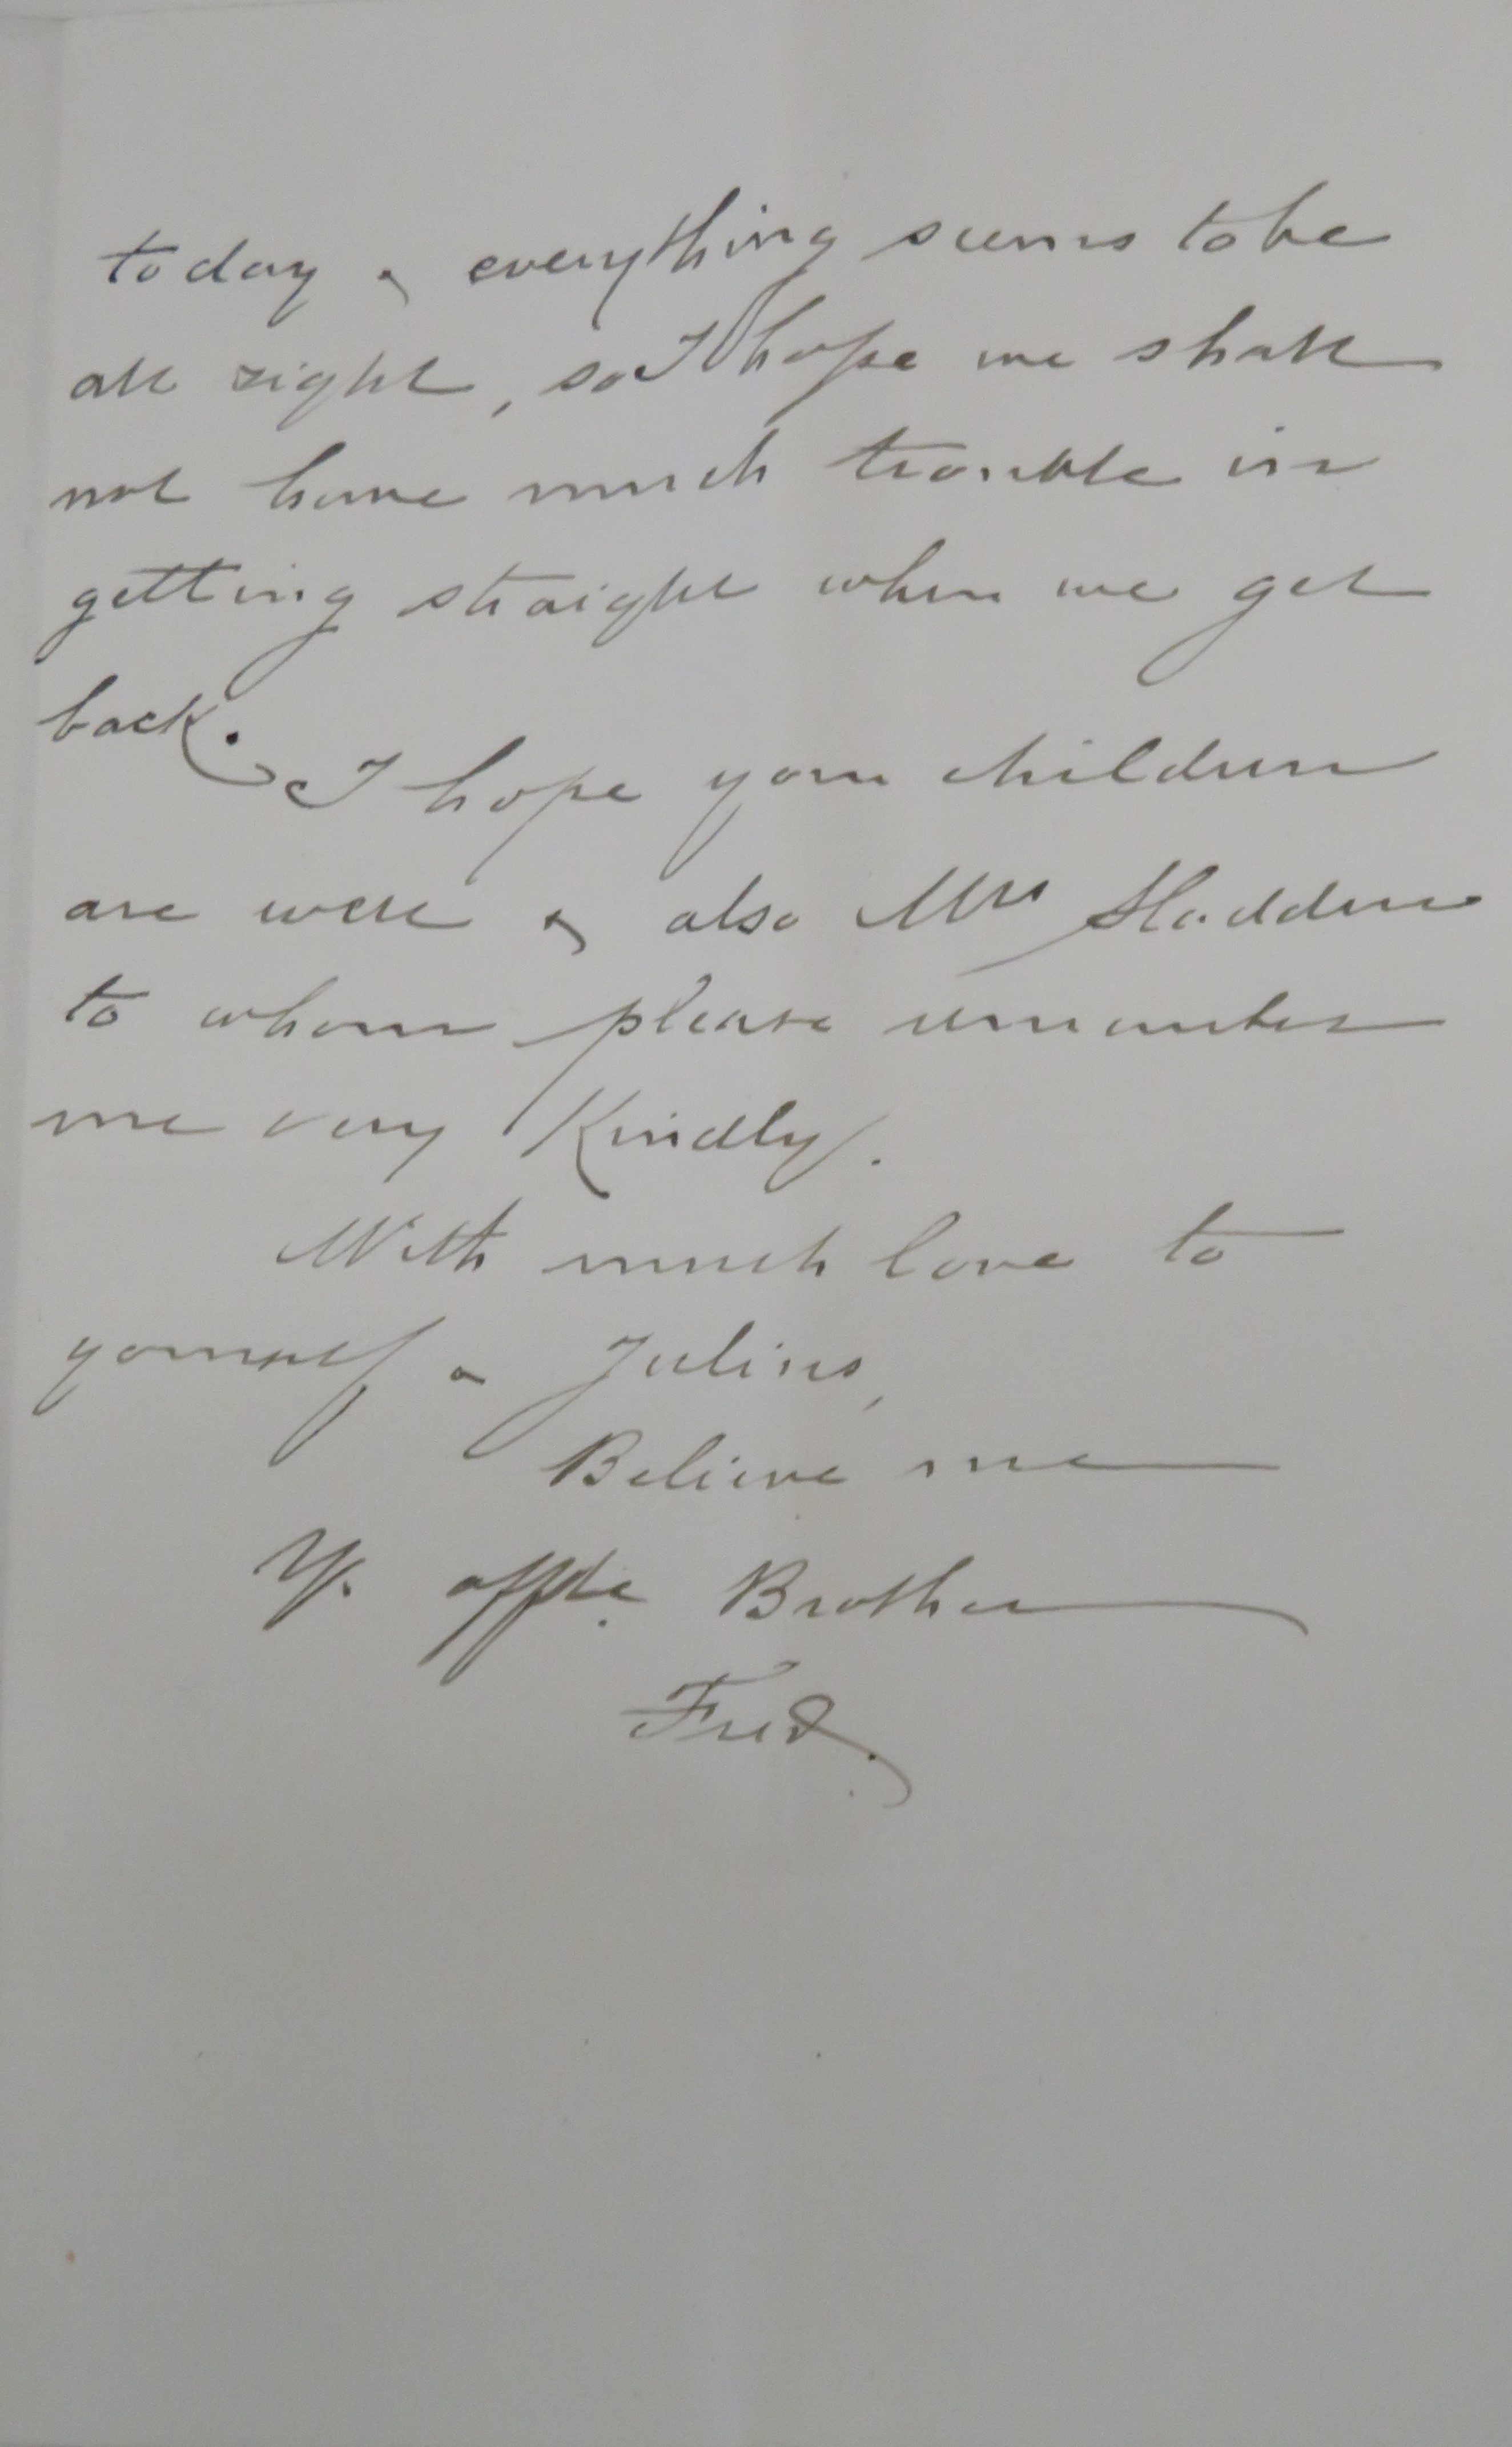 today & everything seems to be
all right, so I hope we shall
not have much trouble in
getting straight when we get
back.
I hope your children
are well & also Mrs Hadden
to whom please remember
me very Kindly.
With much love to
yourself & Julius,
Believe me
Yr. affte. Brother
Fred.